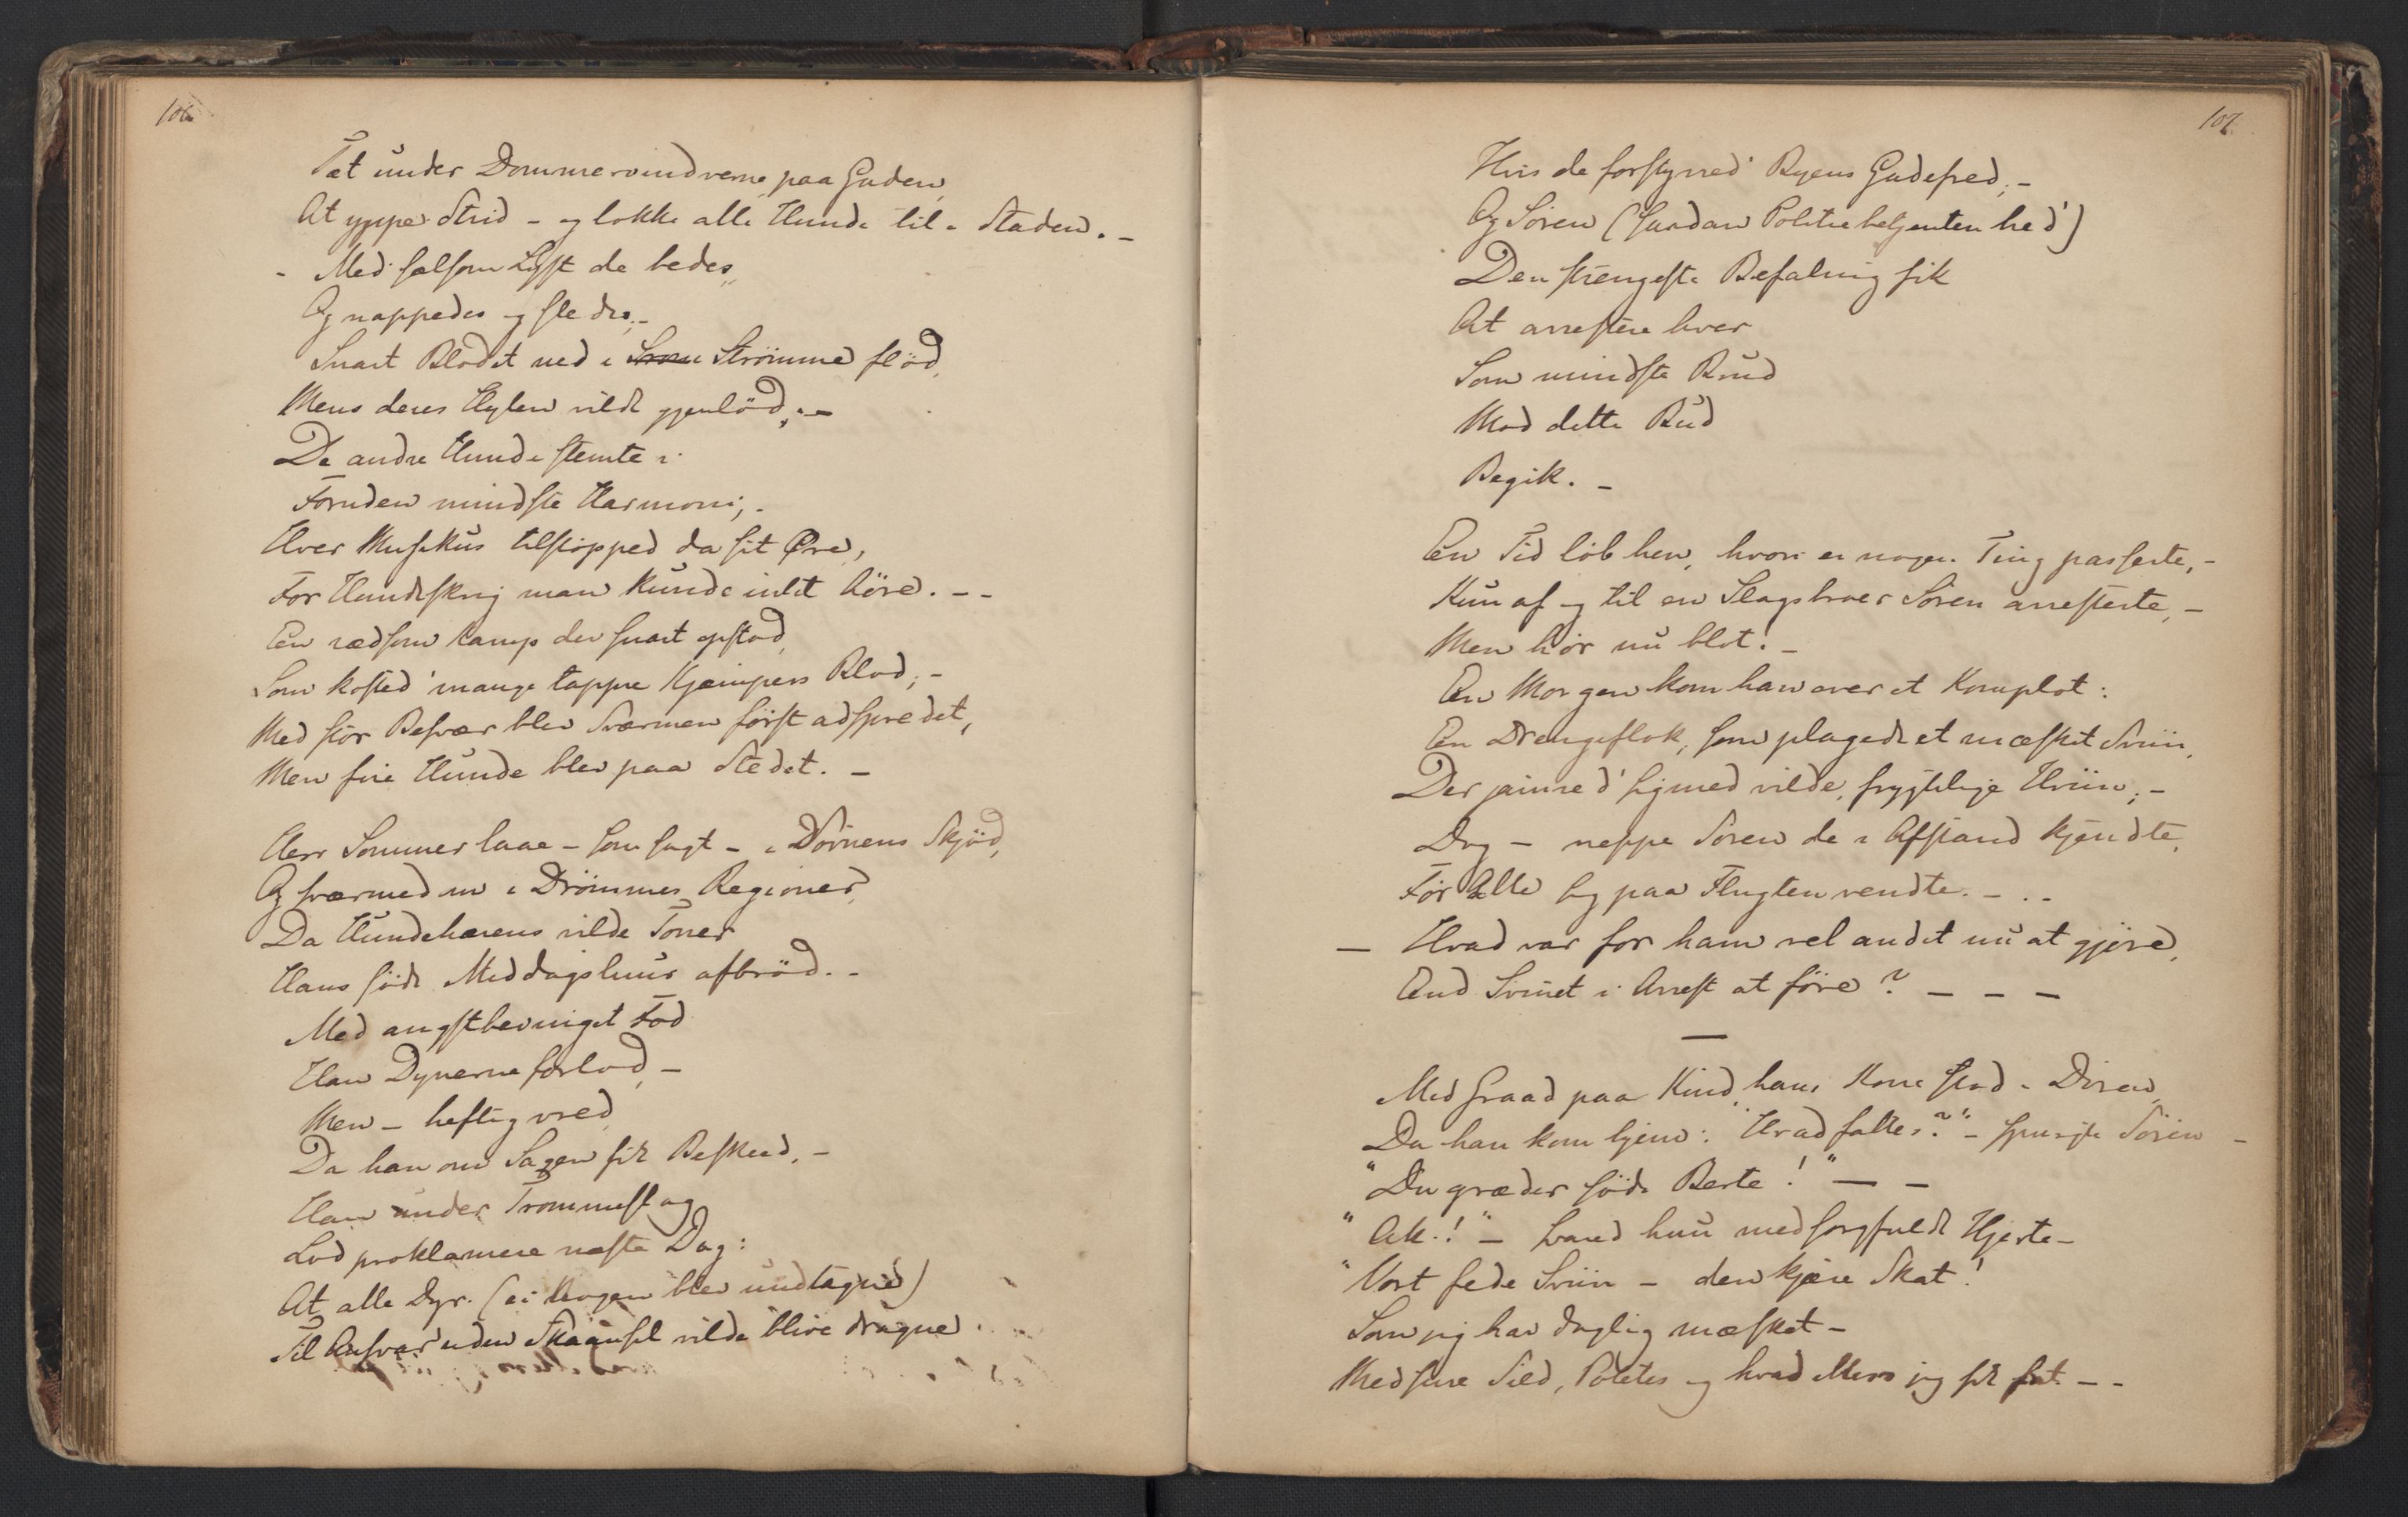 106.
Tæt under Dommervinduerne paa Gaden,
At yppe Strid – og lokke alle Hunde til i Staden. –
– Med sælsom Lyst de bedes,
Og nappedes og sledes, –
Snart Blodet ned i Strömme flöd,
Mens deres Hylen vildt gjenlöd; –
De andre Hunde stemte i
Foruden mindste Harmoni; –
Hver Musikus tilstopped da sit Øre,
For Hundeskrig man kunde intet höre. – –
En rædsom Kamp der snart opstod,
Som kosted' mange tappre Kjæmpers Blod; –
Med stor Besvær blev Sværmen först adspredet,
Men fire Hunde blev paa Stedet. –
Herr Sommer laae – som sagt – i Sövnens Skjöd,
Og sværmed om i Drömmes Regioner,
Da Hundehærens vilde Toner
Hans söde Middagsluur afbröd. –
Med angstbevinget Fod
Han Dynerne forlod, –
Men – heftig vred,
Da han om Sagen fik Beskeed, –
Han under Trommeslag
Lod proklamere næste Dag:
At alle Dyr (ei Nogen blev undtagne)
Til Ansvar uden Skaansel vilde blive dragne
107.
Hvis de forstyrred' Byens Gadefred; –
Og Sören (saadan Politiebetjenten hed')
Den strengeste Befaling fik
At arrestere hver
Som mindste Brud
Mod dette Bud
Begik. –
En Tid löb hen, hvori ei nogen Ting passerte, –
Kun af og til en Slagsbroer Sören arresterte, –
Men hör nu blot! –
En Morgen kom han over et Komplot:
En Drengeflok, som plagede et mæsket Sviin,
Der jamred' sig med vilde, frygtelige Hviin; –
Dog – neppe Sören de i Afstand kjendte,
För Alle sig paa Flugten vendte. – . .
– Hvad var for ham vel andet nu at gjöre,
End Svinet i Arrest at före? – – –
–
Med Graad paa Kind, hans Kone stod i Dören,
Da han kom hjem: "Hvad fattes?" – spurgte Sören –
"Du græder söde Berte!" – –
"Ak!" – svared hun med sorgfuldt Hjerte –
"Vort fede Sviin – den kjære Skat!
Som jeg har daglig mæsket –
Med sure Sild, Potetes og hvad Mere jeg fik fat – –